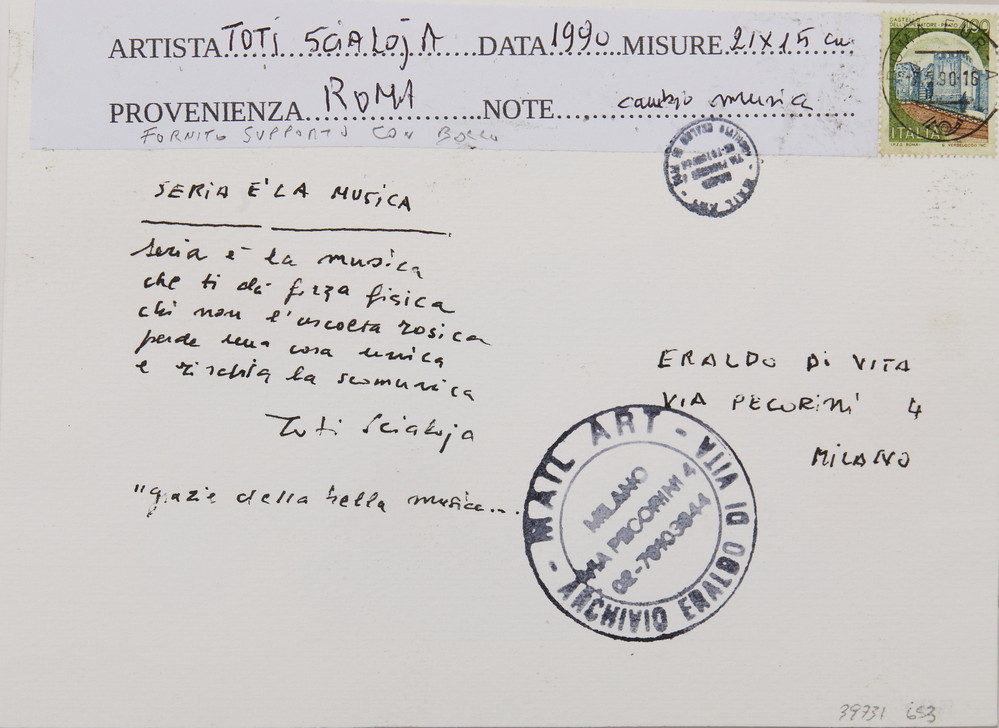 ARTISTA TOTI SCIALOJA DATA 1990 MISURE 21X15 cm
PROVENIENZA ROMA NOTE cambio musica
FORNITO SUPPORTO CON BOLLO
CASTELLO
400
ITALIA
SERIA E' LA MUSICA
seria è la musica
che ti dà forza fisica
chi non l'ascolta rosica
perde una cosa unica
e rischia la scomunica
Toti Scialoja
"grazie della bella musica...
ERALDO DI VITA
VIA PECORINI 4
MILANO
MAIL ART - ARCHIVIO ERALDO DI VITA -
MILANO
VIA PECORINI 4
39731 653